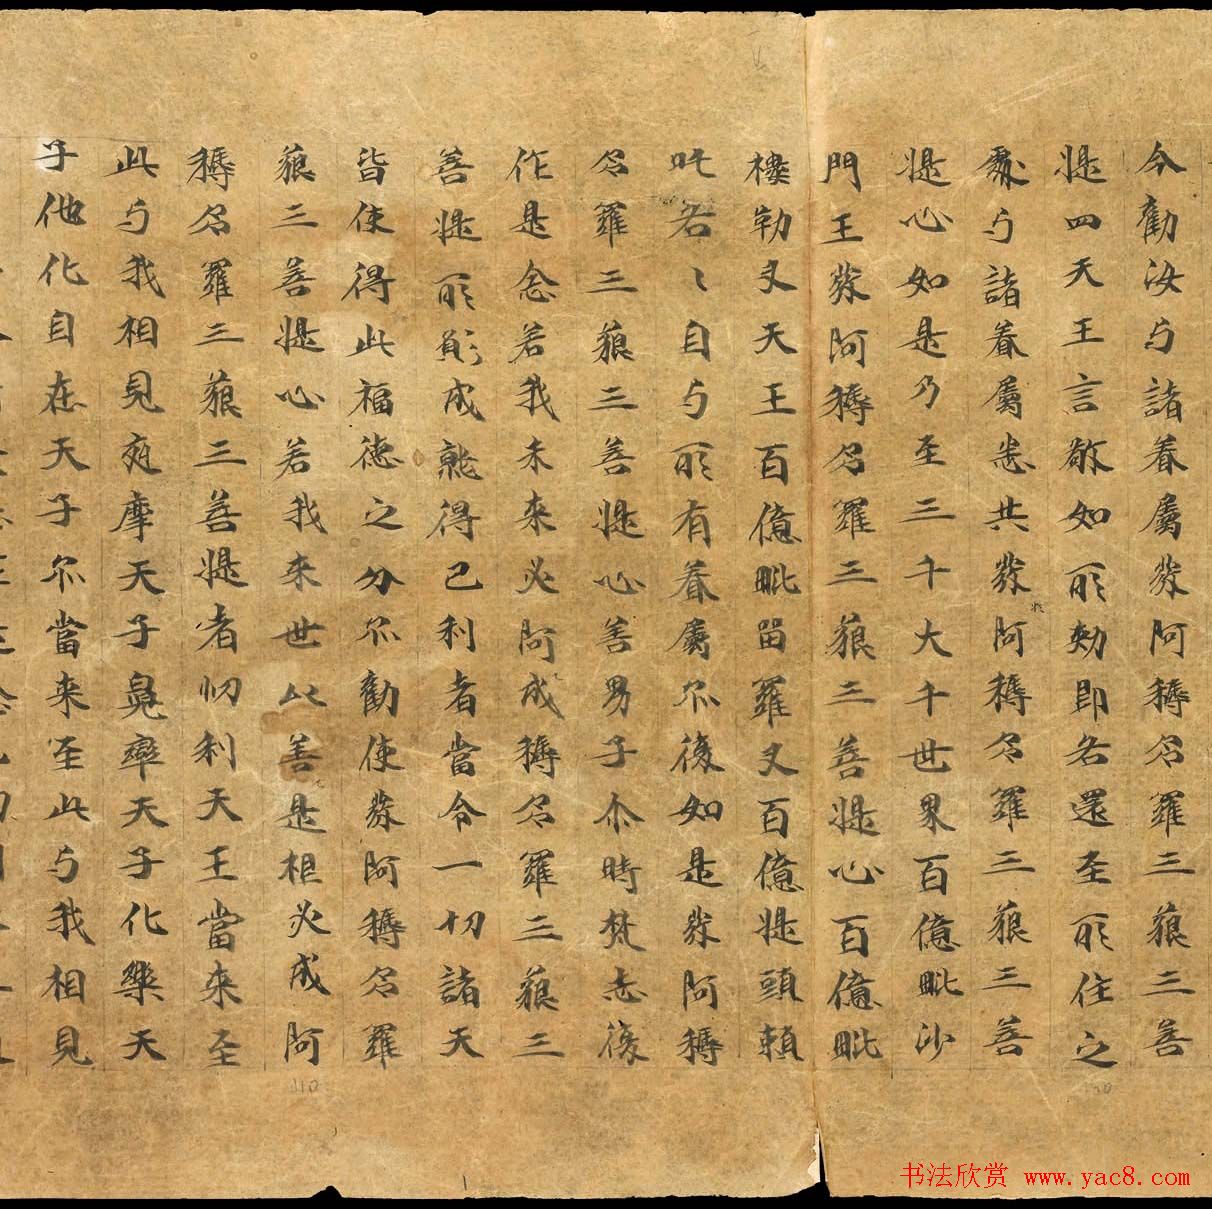 今勸汝与諸眷屬發阿耨多羅三藐三菩
提四天王言敬如所勑即各還至所住之
處与諸眷屬悉共發阿耨多羅三藐三菩
提心如是乃至三千大千世界百億毗沙
門王發阿耨多羅三藐三菩提心百億毗
樓勒叉天王百億毗留羅叉百億提頭賴
吒各々自与所有眷屬亦復如是發阿耨
多羅三藐三菩提心善男子尒時梵志復
作是念若我未來必阿成耨多羅三藐三
菩提所願成就得己利者當令一切諸天
皆使得此福德之分亦勸使發阿耨多羅
藐三菩提心若我来世以善是相必成阿
耨多羅三藐三菩提者忉利天王當來至
此与我相見夜摩天子兜率天子化樂天
子他化自在天子亦當来至此与我相見
书法欣赏 www.yac8.com